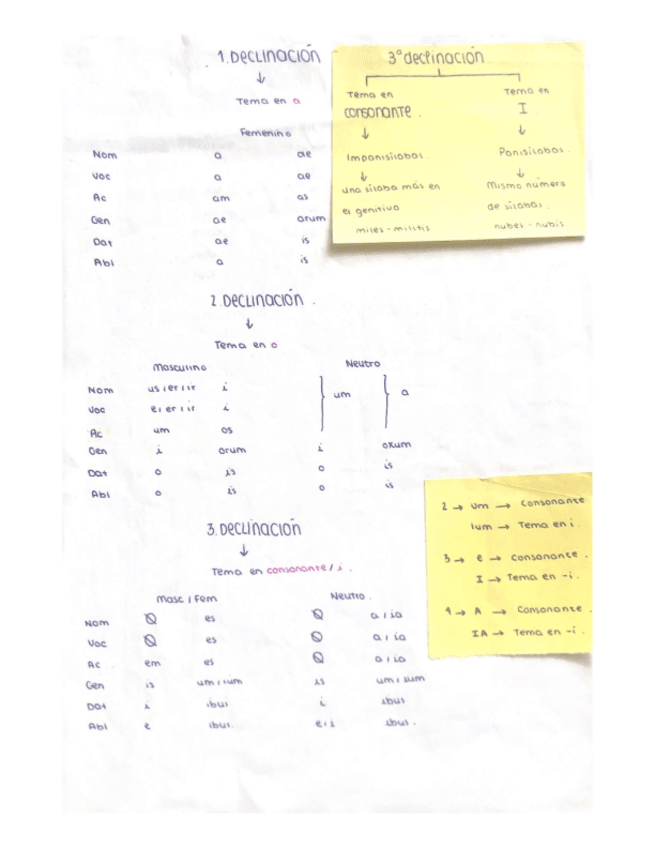 1. DECLINACIÓN
↓
Tema en a
Femenino
Nom a ae
Voc a ae
Ac am as
Gen ae arum
Dat ae is
Abl a is
3º declinación
Tema en consonante.
↓
Imparisílabos.
↓
una sílaba más en
el genitivo
miles - militis
Tema en
I
↓
Parisílabos.
↓
Mismo número
de sílabas.
nubes - nubis
2. DECLINACIÓN.
↓
Tema en o
Masculino Neutro
Nom us/er/ir i um a
Voc e/er/ir i
Ac um os
Gen i orum i orum
Dat o is o is
Abl o is o is
3. DECLINACIÓN
↓
Tema en consonante/i.
Masc/Fem Neutro.
Nom Ø es Ø a/ia
Voc Ø es Ø a/ia
Ac em es Ø a/ia
Gen is um/ium is um/ium
Dat i ibus i ibus
Abl e ibus. e/i ibus.
2 → Um → Consonante
Ium → Tema en i.
3 → e → Consonante.
I → Tema en -i.
4 → A → Consonante.
IA → Tema en -i.